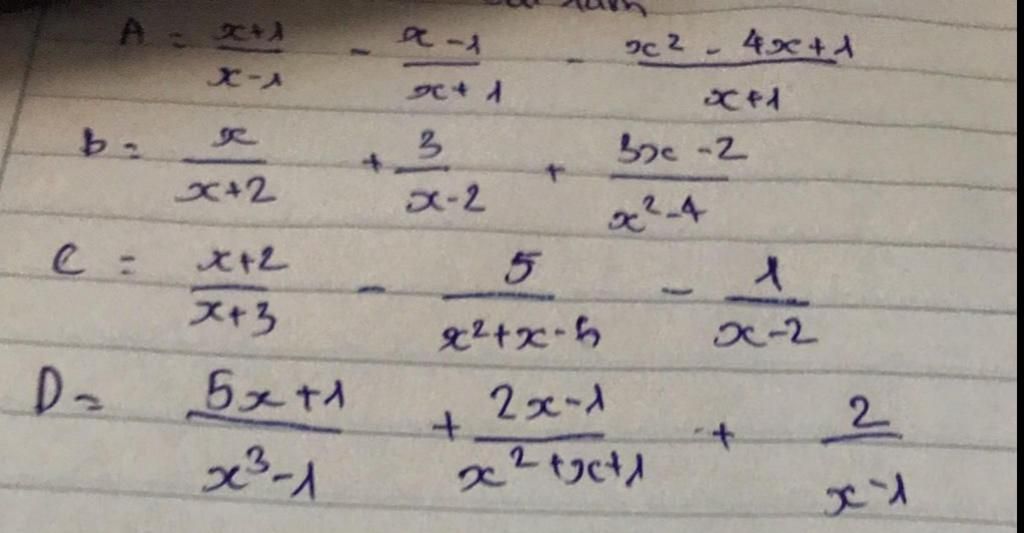 A = \frac{x+1}{x-1} - \frac{x-1}{x+1} - \frac{x^2-4x+1}{x+1}
b = \frac{x}{x+2} + \frac{3}{x-2} + \frac{5x-2}{x^2-4}
C = \frac{x+2}{x+3} - \frac{5}{x^2+x-5} - \frac{1}{x-2}
D = \frac{5x+1}{x^3-1} + \frac{2x-1}{x^2+x+1} + \frac{2}{x-1}